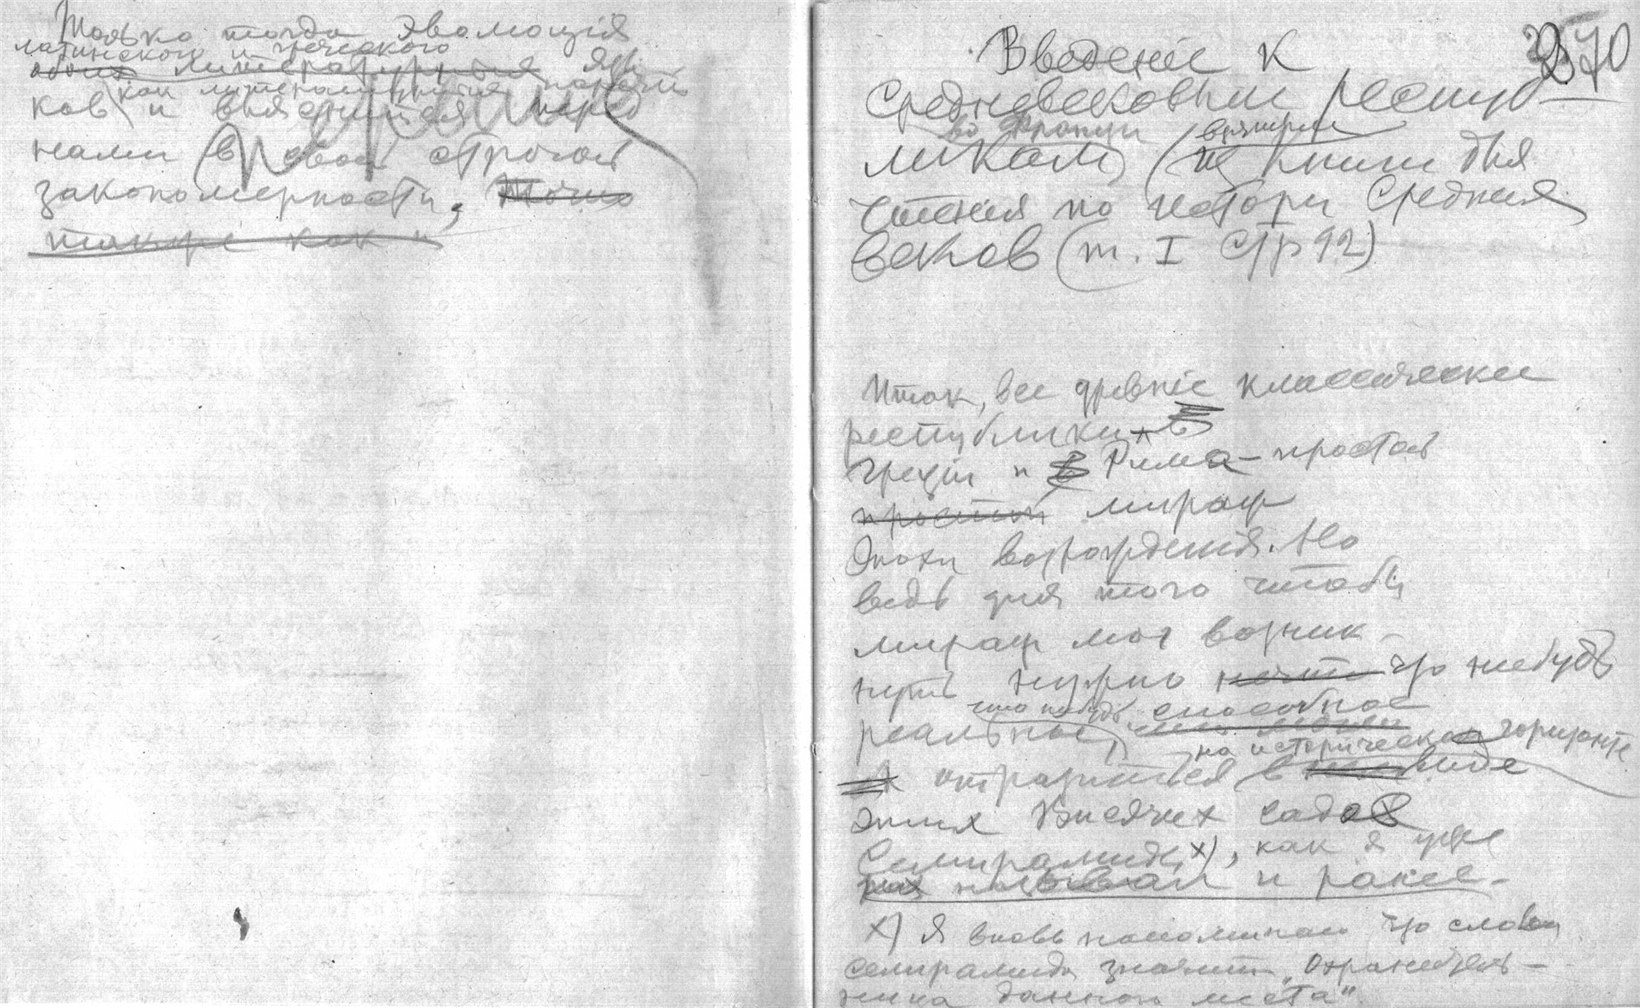 Только тогда эволюція
латинского и греческого
обоих литературныя язы
как литературныя наречи
ков и выяснится перед
нами в своей строгой
закономерности, Точно
также как и
370
Введеніе к
Средневековым респуб
ликам во Франціи
книги для
чтения по истори Средния
веков (т. I стр 92)
Итак, все древніе классические
республики в
Греціи и в Рима – простой
простой мираж
Эпохи возрожденія. Но
ведь для того чтобы
мираж мог возник-
нуть нужно что нибудь
что нибудь способное
реальное,
на историческом горизонте
отразиться в виде
этих висячих садов
Семирамиды х), как я уже
их называл и ранее.
х) Я вновь напоминаю что слово
семирамида значит "Охранитель-
ница данного места"